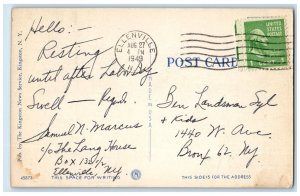 Hello:-
Resting
until after Labor Day
Swell - Regds.
Samuel N. Marcus
c/o The Lang House
Box 135 1/2
Ellenville, NY
THIS SPACE FOR WRITING
45873
Pub. by The Kingston News Service, Kingston, N. Y.
ELLENVILLE
AUG 27
4 PM
1949
N.Y.
POST CARD
UNITED STATES
Ben Landsman
& Kids
1440 W. Ave
Bronx 62 NY
THIS SPACE IS FOR ADDRESS